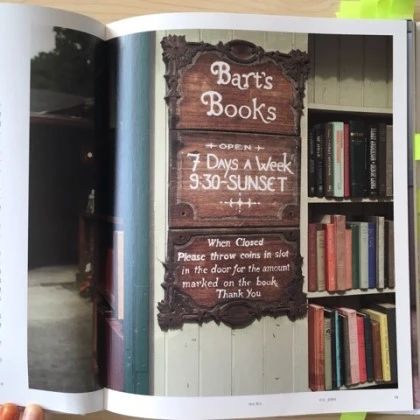 Bart's
Books
OPEN
7 DAYS A WEEK
9:30-SUNSET
When Closed
Please throw coins in slot
in the door for the amount
marked on the book
Thank You